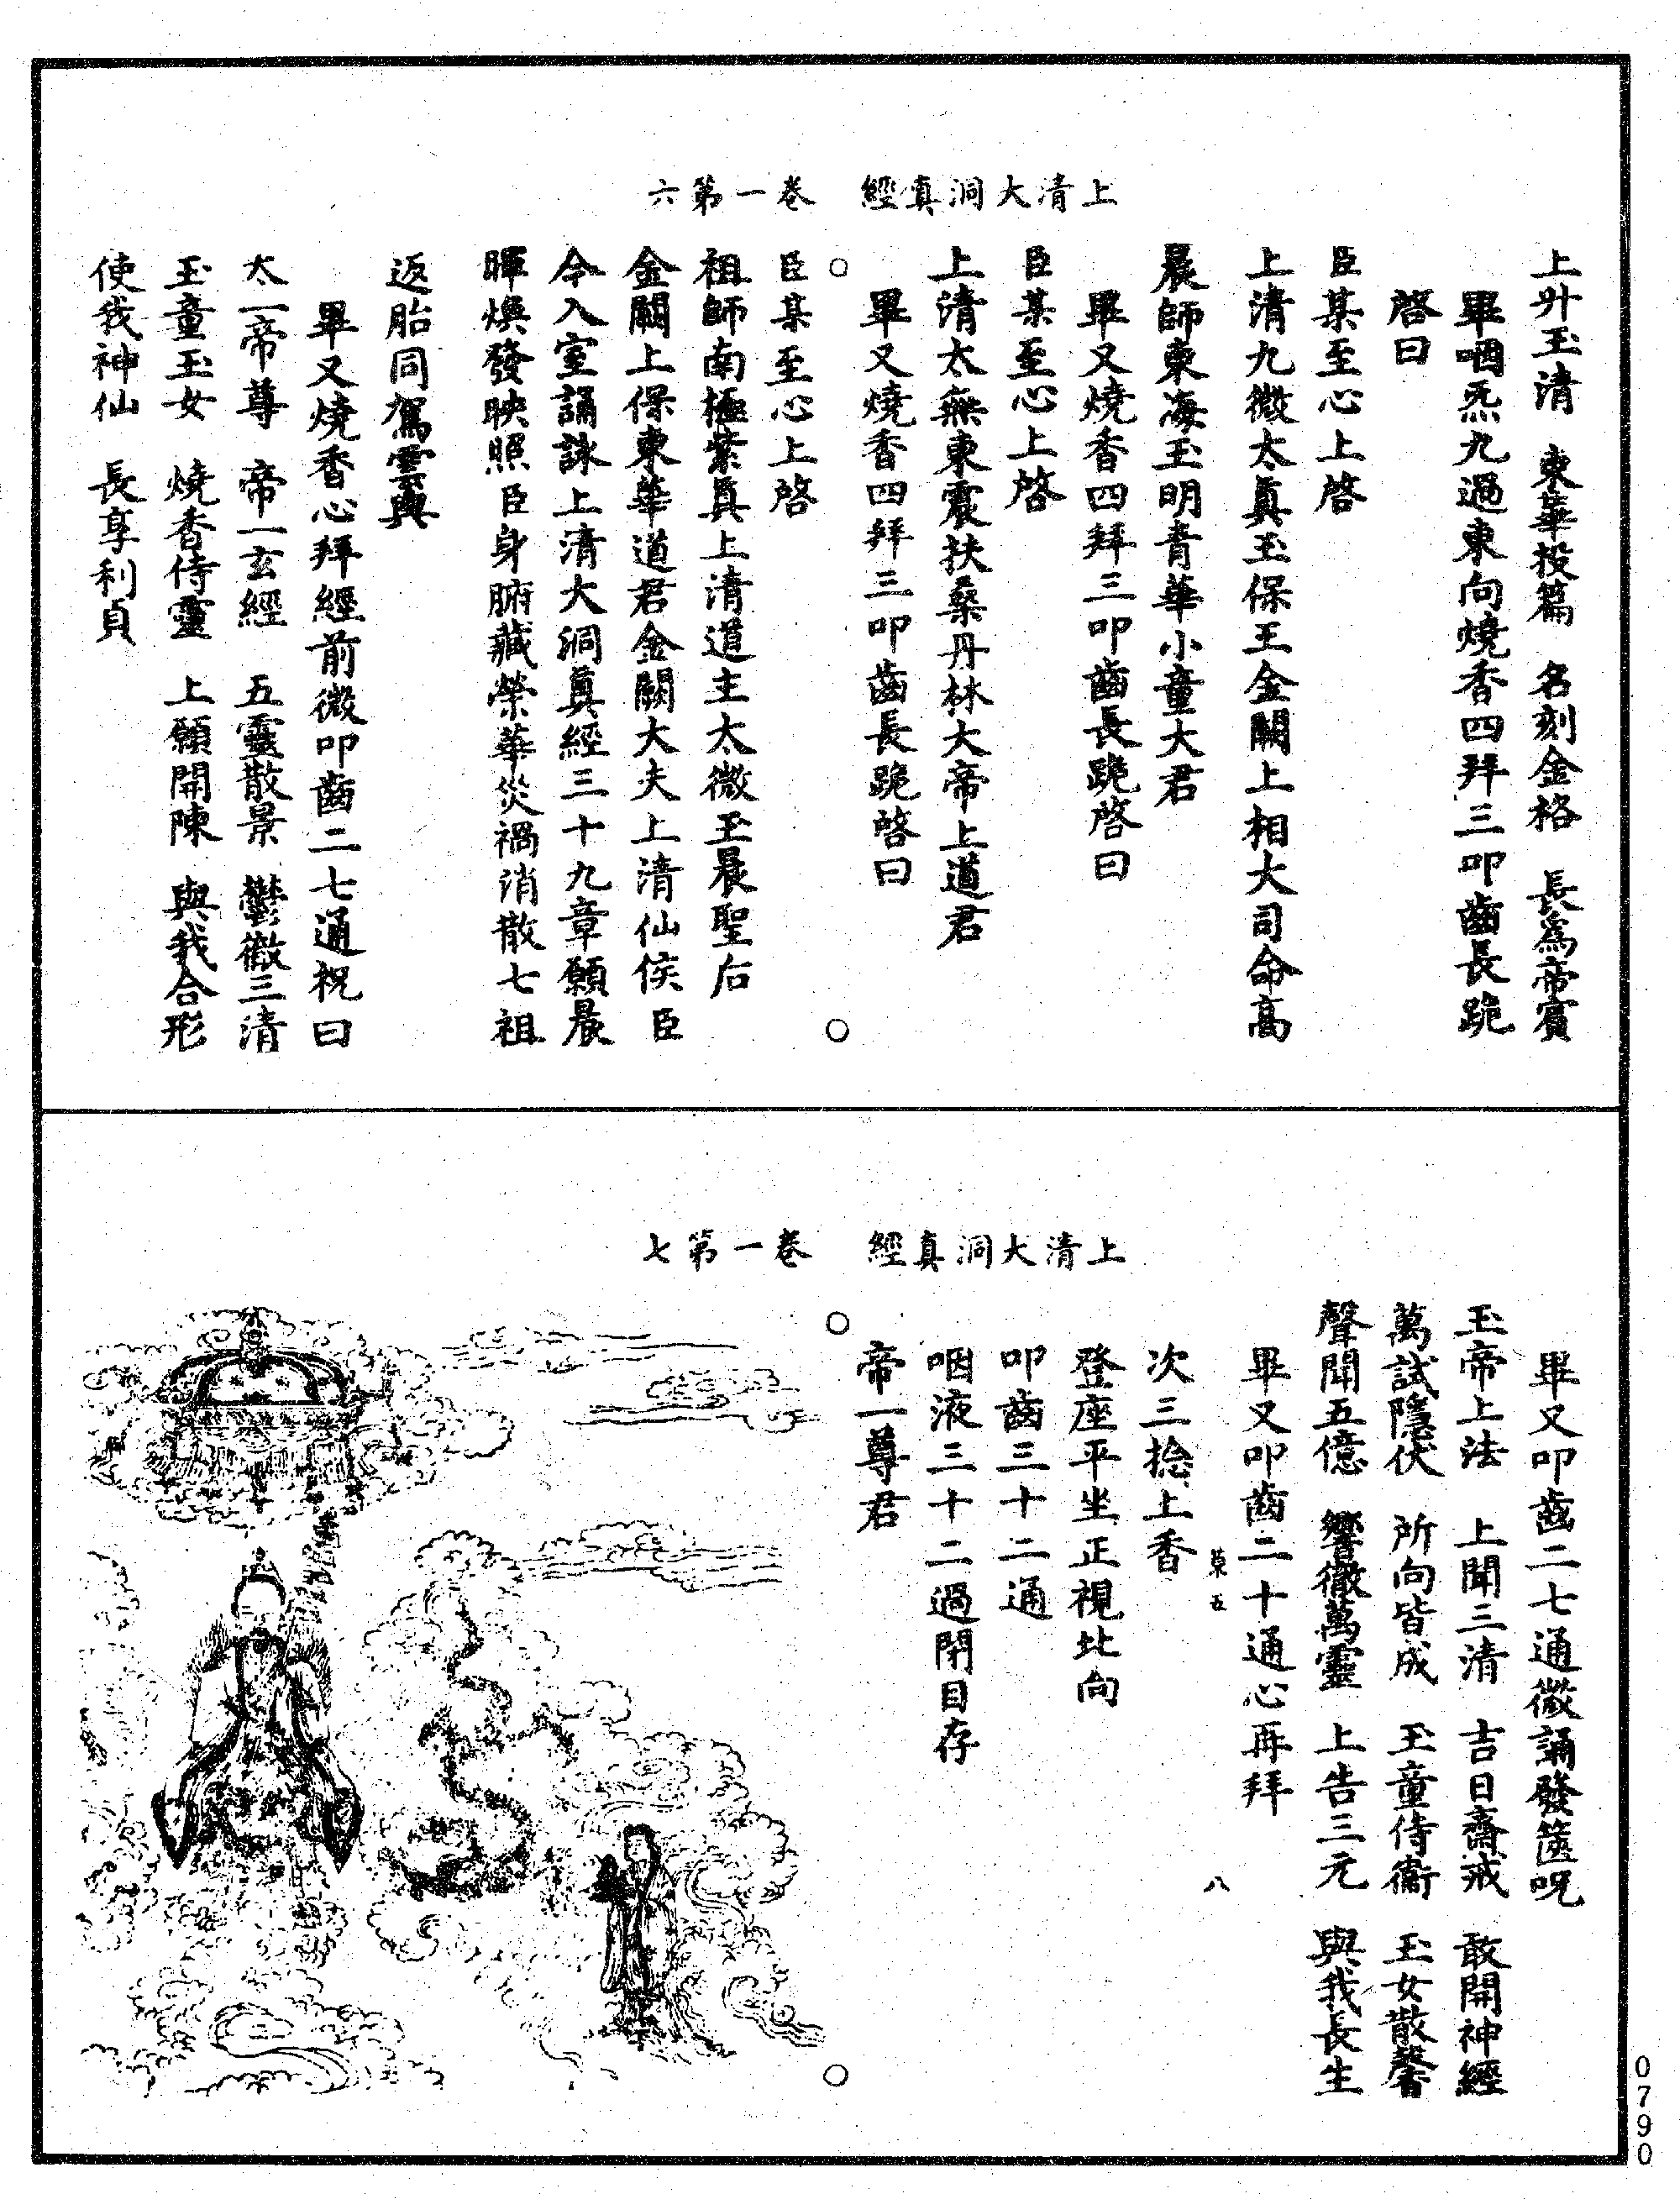 上清大洞真經　卷一第六
上升玉清　東華投篇　名刻金格　長為帝賓
畢咽炁九過東向燒香四拜三叩齒長跪
啓曰
臣某至心上啓
上清九微太真玉保王金闕上相大司命高
晨師東海玉明青華小童大君
畢又燒香四拜三叩齒長跪啓曰
臣某至心上啓
上清太無東震扶桑丹林大帝上道君
畢又燒香四拜三叩齒長跪啓曰
臣某至心上啓
祖師南極紫真上清道主太微玉晨聖后
金闕上保東華道君金闕大夫上清仙侯臣
今入室誦詠上清大洞真經三十九章願晨
暉煥發映照臣身腑藏榮華災禍消散七祖
返胎同駕雲輿
畢又燒香心拜經前微叩齒二七通祝曰
太一帝尊　帝一玄經　五靈散景　鬱徹三清
玉童玉女　燒香侍靈　上願開陳　與我合形
使我神仙　長享利貞
上清大洞真經　卷一第七
畢又叩齒二七通微誦發篋呪
玉帝上法　上聞三清　吉日齋戒　敢開神經
萬試隱伏　所向皆成　玉童侍衛　玉女散馨
聲聞五億　響徹萬靈　上告三元　與我長生
畢又叩齒二十通心再拜
八
次三捻上香
登座平坐正視北向
叩齒三十二通
咽液三十二過閉目存
帝一尊君
0790